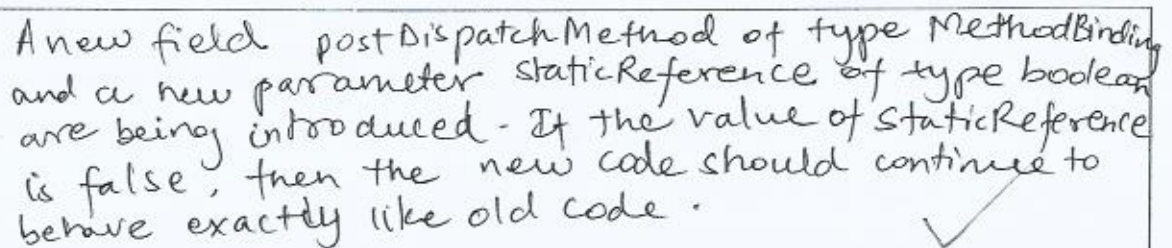 A new field postDispatchMethod of type MethodBinding
and a new parameter staticReference of type boolean
are being introduced. If the value of staticReference
is false, then the new code should continue to
behave exactly like old code.